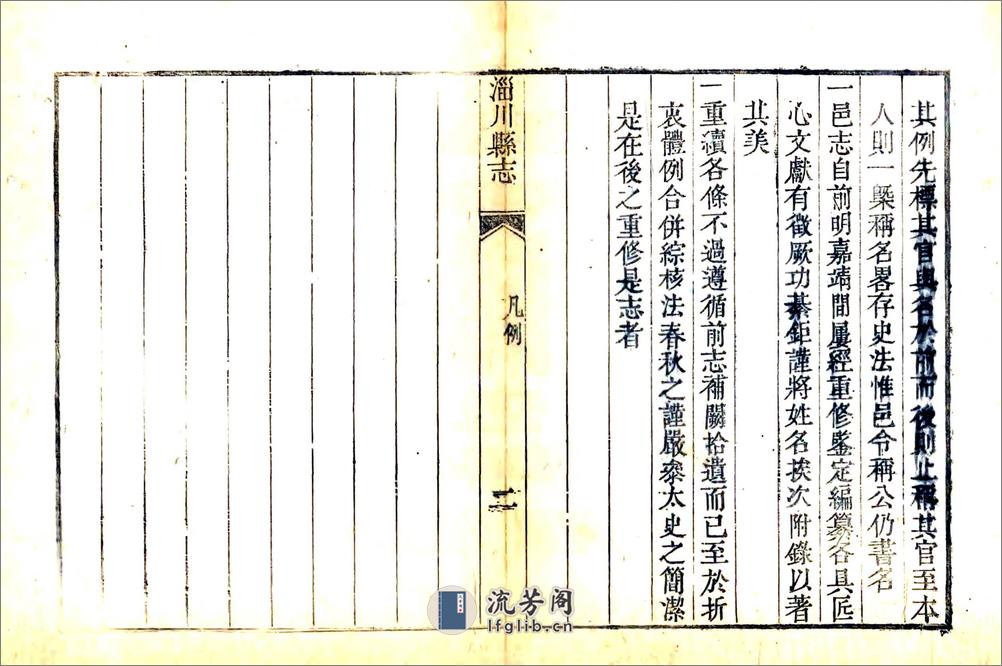 其例先標其官與名於前而後則止稱其官至本
人則一槩稱名畧存史法惟邑令稱公仍書名
一邑志自前明嘉靖間屢經重修鑒定編纂各具匠
心文獻有徵厥功綦鉅謹將姓名挨次附錄以著
其美
一重續各條不過遵循前志補闕拾遺而已至於折
衷體例合併綜核法春秋之謹嚴叅太史之簡潔
是在後之重修是志者
淄川縣志
凡例
二
流芳阁
lfglib.cn